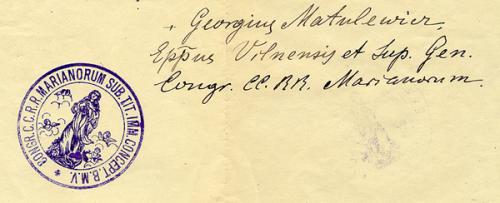 + Georgius Matulewicz
Epp̄us Vilnensis et Sup. Gen.
Congr. CC. RR. Marianorum.
* CONGR. C.C.R.R. MARIANORUM SUB. TIT. IMM. CONCEPT. B.M.V.